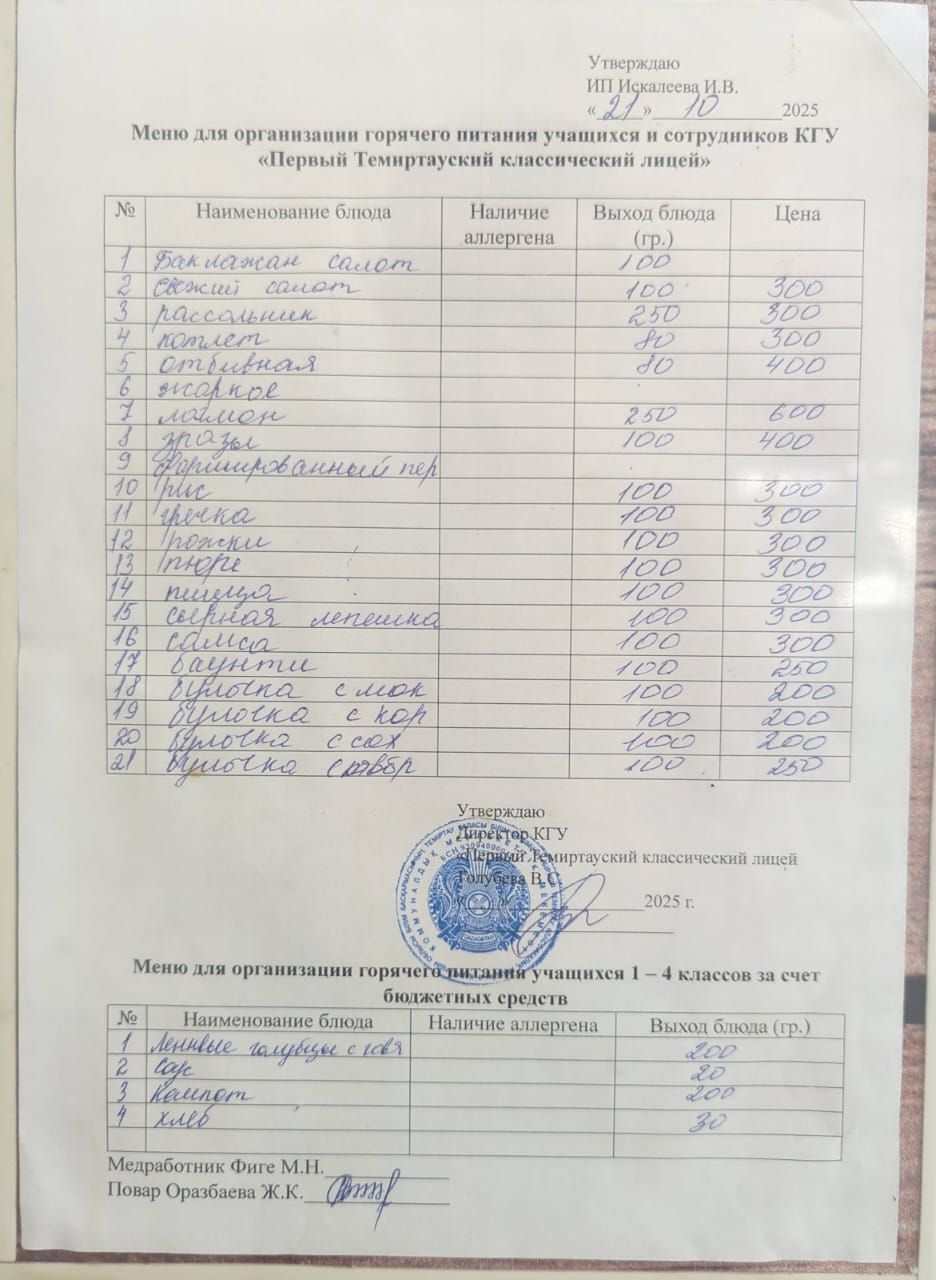 Утверждаю
ИП Искалеева И.В.
«21» 10 2025
Меню для организации горячего питания учащихся и сотрудников КГУ
«Первый Темиртауский классический лицей»
№ Наименование блюда Наличие аллергена Выход блюда (гр.) Цена
1 Баклажан салат 100
2 свежий салат 100 300
3 рассольник 250 300
4 котлет 80 300
5 отбивная 80 400
6 жаркое
7 лагман 250 600
8 зразы 100 400
9 Фаршированный пер
10 рис 100 300
11 гречка 100 300
12 рожки 100 300
13 пюре 100 300
14 пицца 100 300
15 сырная лепешка 100 300
16 самса 100 300
17 баунти 100 250
18 булочка с мак 100 200
19 булочка с кор 100 200
20 булочка с сах 100 200
21 булочка с твор 100 250
Утверждаю
Директор КГУ
«Первый Темиртауский классический лицей
Голубева В.С
2025 г.
Меню для организации горячего питания учащихся 1 – 4 классов за счет
бюджетных средств
№ Наименование блюда Наличие аллергена Выход блюда (гр.)
1 Ленивые голубцы с говя 200
2 Соус 20
3 Компот 200
4 хлеб 30
Медработник Фиге М.Н.
Повар Оразбаева Ж.К.